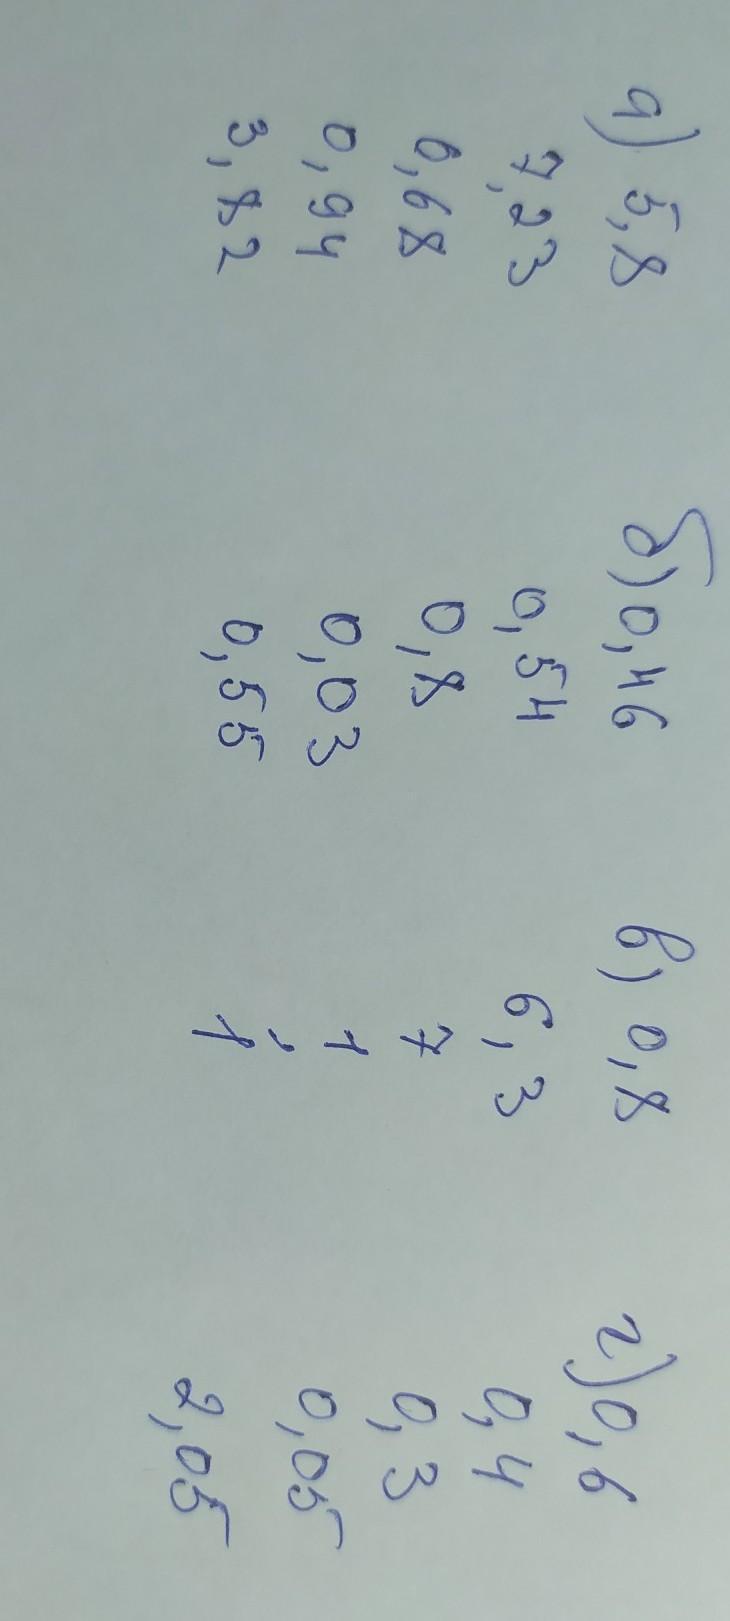 а) 5,8
7,23
6,68
0,94
3,82
б) 0,46
0,54
0,8
0,03
0,55
в) 0,8
6,3
7
1
1
г) 0,6
0,4
0,3
0,05
2,05